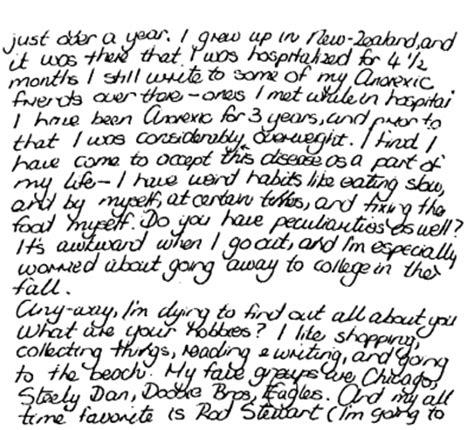 just over a year. I grew up in New-Zealand, and
it was there that I was hospitalized for 4 1/2
months I still write to some of my Anorexic
friends over there - ones I met while in hospital
I have been Anorexic for 3 years, and prior to
that I was considerably overweight. I find I
have come to accept this disease as a part of
my life - I have weird habits like eating slow,
and by myself, at certain times, and fixing the
food myself. Do you have peculiarities as well?
It's awkward when I go out, and I'm especially
worried about going away to college in the
fall.
Any-way, I'm dying to find out all about you
What are your hobbies? I like shopping,
collecting things, reading & writing, and going
to the beach. My fave groups are, Chicago,
Steely Dan, Doobie Bros, Eagles. And my all
time favorite is Rod Stewart (I'm going to